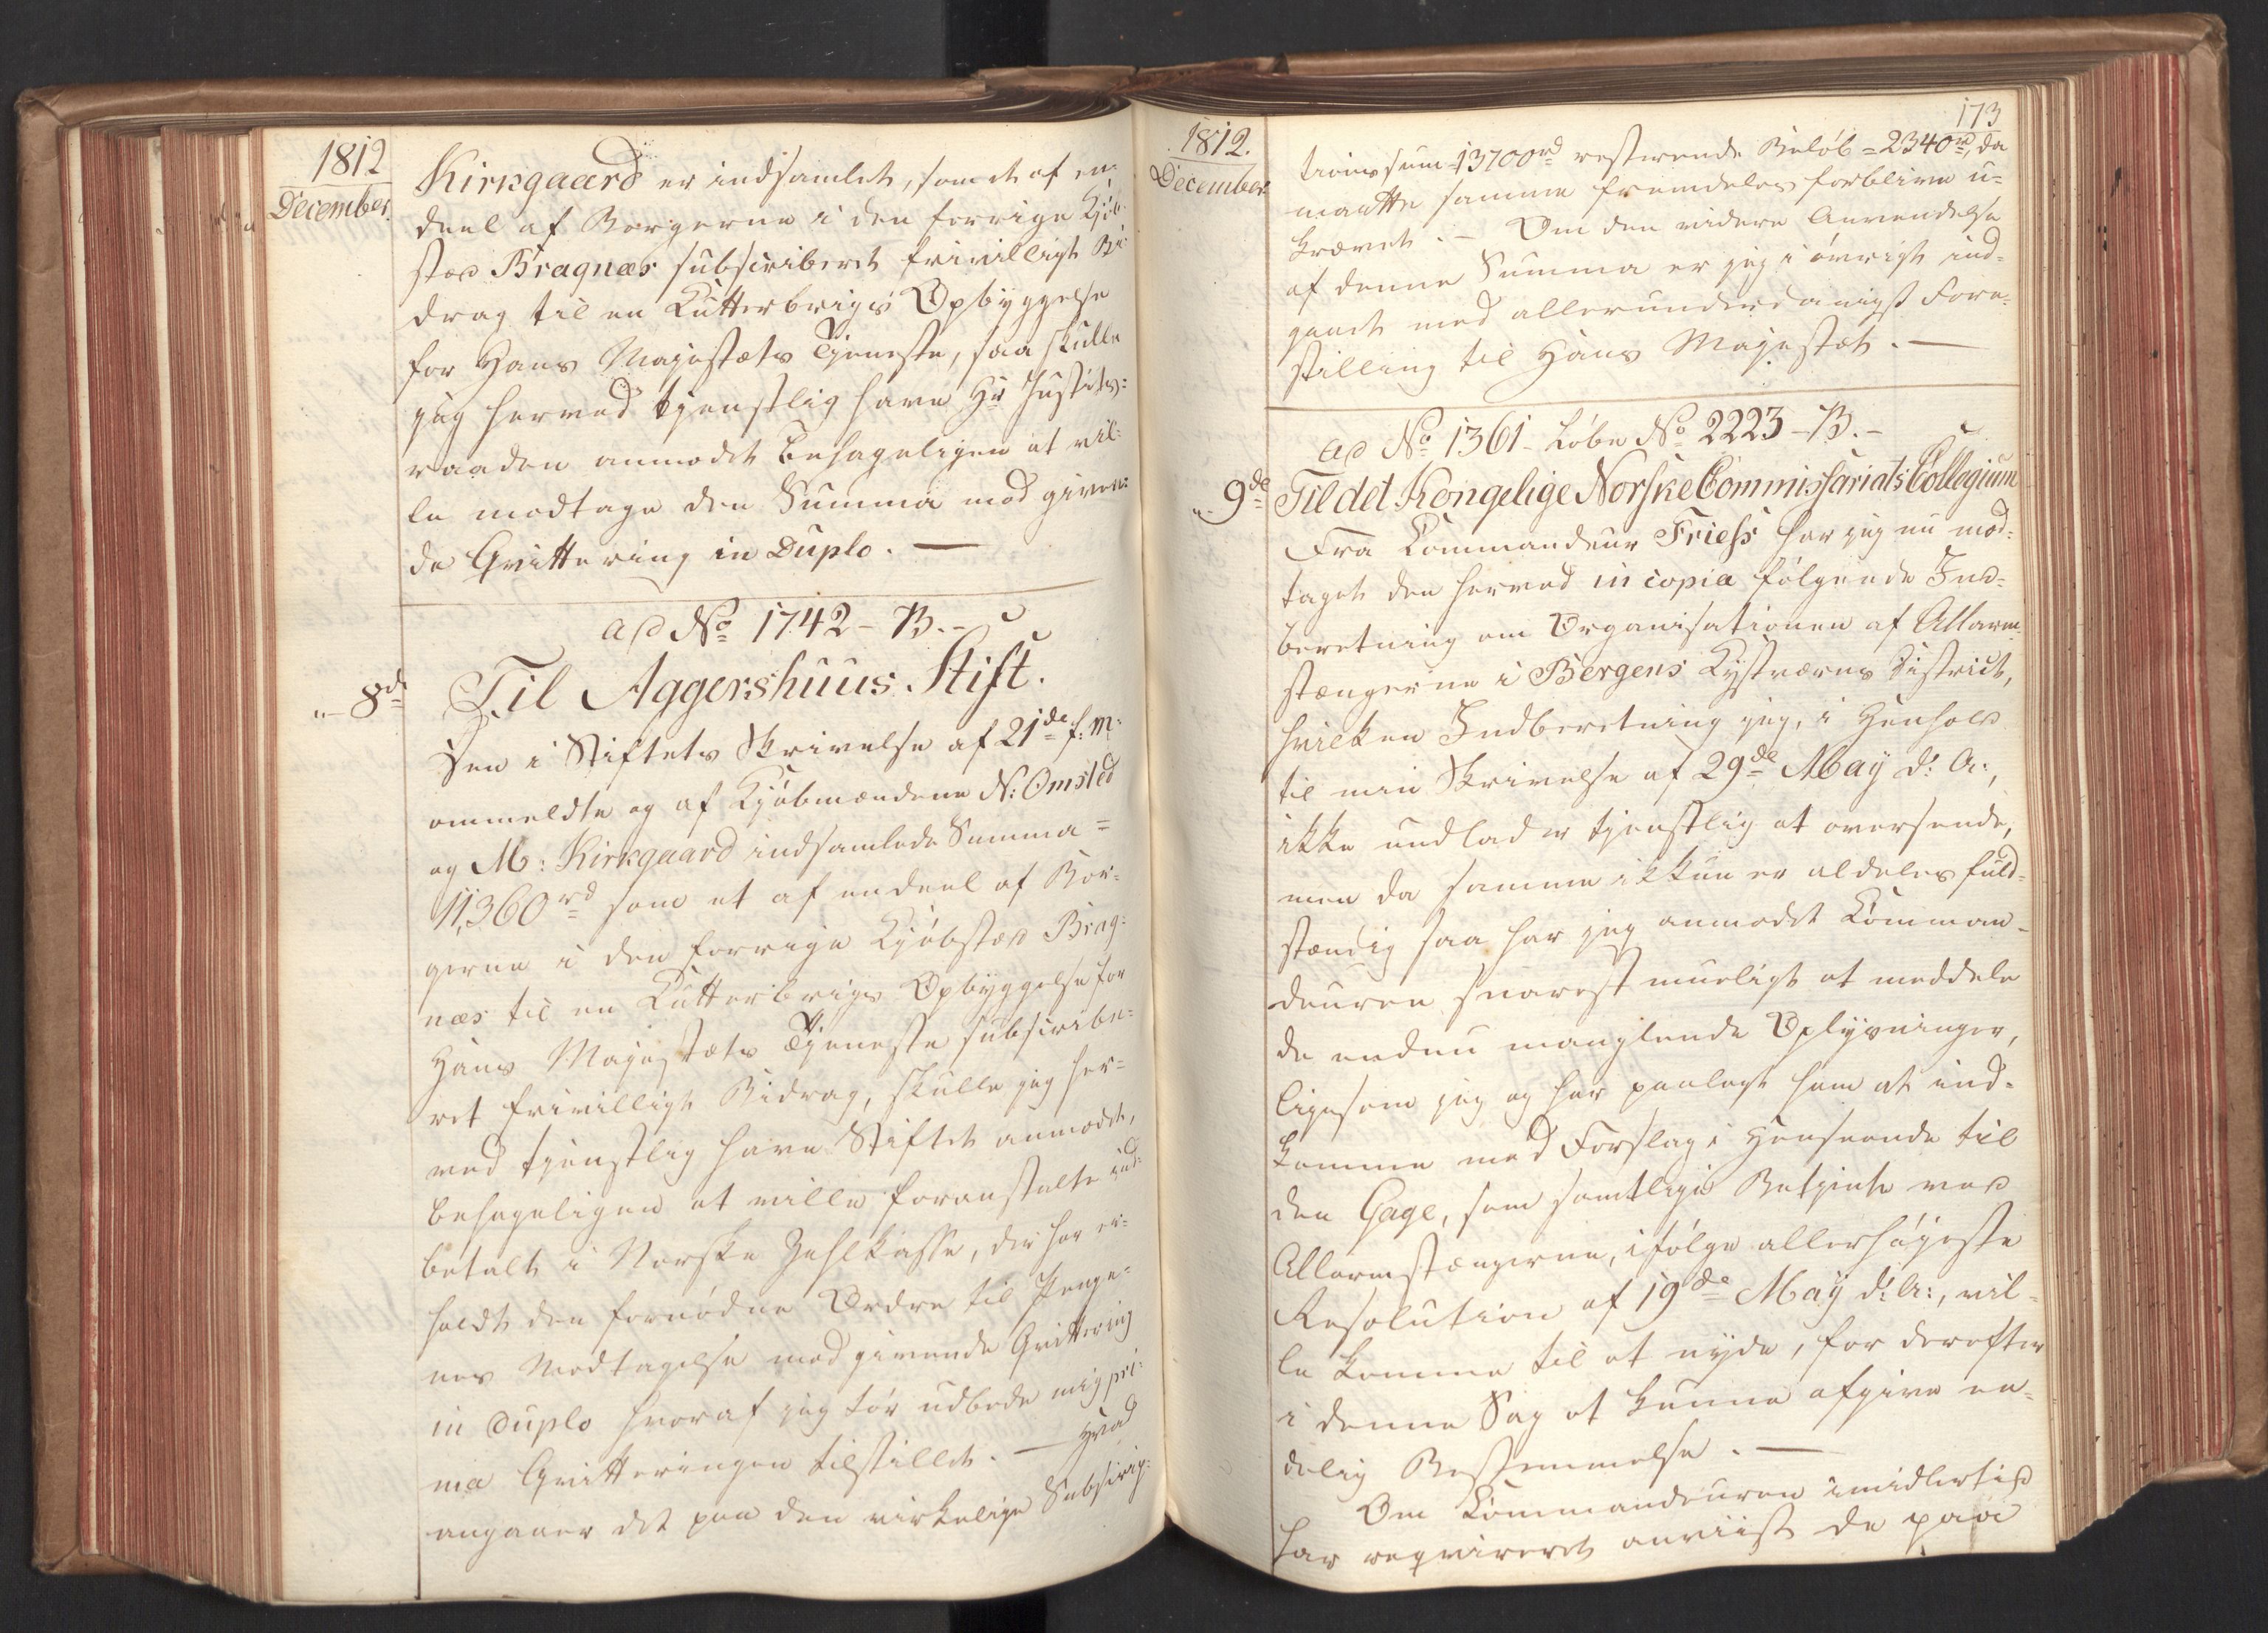 1812
December.
Kirkgaard er indsamlet, som et af en
deel af Borgerne i den forrige Kjöb-
stæd Bragnæs subscriberet frivilligt Bi-
drag til en Kutterbrigs Opbyggelse
for Hans Majestæts Tjeneste, saa skulle
jeg herved tjenstlig have Hr Justits-
raaden anmodet behageligen at vil-
le modtage den Summa mod given-
de Qvittering in Duplo. —
ad No 1742 - B. -
"- 8de
Til Aggershuus Stift.
Den i Stiftets Skrivelse af 21de f: M:
ommeldte og af Kjöbmændene N: Omsted
og M: Kirkgaard indsamlede Summa =
11,360rd som et af endeel af Bor-
gerne i den forrige Kjöbstæd Brag-
næs til en Kutterbrigs Opbyggelse for
Hans Majestæts Tjeneste subscribe-
ret frivilligt Bidrag, skulle jeg her-
ved tjenstlig have Stiftet anmodet,
behageligen at ville foranstalte ind-
betalt i Norske Zahlkasse, der har er-
holdt den fornödne Ordre til Penge-
nes Modtagelse mod givende Qvittering
in duplo hvoraf jeg tör udbede mig pri-
ma Qvitteringen tilstillet. — Hvad
angaaer det paa den virkelige Subscrip-
1812.
December
173
tions sum 13700rd resterende Belöb = 2340rd, da
maatte samme fremdeles forblive u-
krævet. - Om den videre Anvendelse
af denne Summa er jeg i övrigt ind-
gaaet med allerunderdanigst Fore-
stilling til Hans Majestæt. —
ad No 1361 - Löbe No 2223 - B. -
"- 9de
Til det Kongelige Norske Commissariats Collegium
Fra Commandeur Friess har jeg nu mod-
taget den herved in copia fölgende Ind-
beretning om Organisationen af Allarm-
stængerne i Bergens Kystværns District,
hvilken Indberetning jeg, i Henhold
til min Skrivelse af 29de May d: A:,
ikke undlader tjenstlig at oversende,
men da samme ikkun er aldeles fuld-
stændig saa har jeg anmodet Comman-
deuren snarest mueligt at meddele
de endnu manglende Oplysninger,
ligesom jeg og har paalagt ham at ind-
komme med Forslag i Henseende til
den Gage, som samtlige Betjente ved
Allarmstængerne, ifölge allerhöjeste
Resolution af 19de May d: A:, vil-
le komme til at nyde, for derefter
i denne Sag at kunne afgive en-
delig Bestemmelse. —
Om Commandeuren imidlertid
har reqvireret anviist de paa